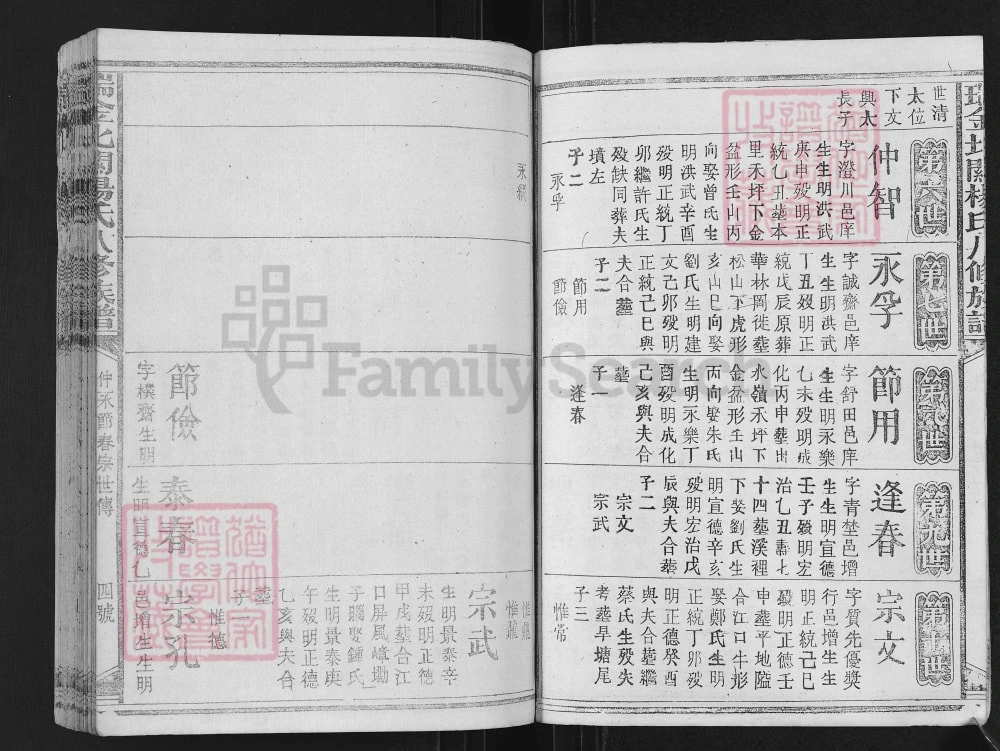 世清
太位
下文
興太
長子
第六世
仲智
字澄川邑庠
生生明洪武
庚申歿明正
統乙丑塟本
里禾坪下金
盆形壬山丙
向娶曾氏生
明洪武辛酉
歿明正統丁
卯繼許氏生
歿缺同葬夫
墳左
子二
永孚
永綱
第七世
永孚
字誠齋邑庠
生生明洪武
丁丑歿明正
統戊辰原葬
華林岡徙塟
松山下虎形
亥山巳向娶
劉氏生明建
文己卯歿明
正統己巳與
夫合塟
子二
節用
節儉
第八世
節用
字舒田邑庠
生生明永樂
乙未歿明成
化丙申塟出
水嶺禾坪下
金盆形壬山
丙向娶朱氏
生明永樂丁
酉歿明成化
己亥與夫合
塟
子一
逢春
第九世
逢春
字青埜邑增
生生明宣德
壬子歿明宏
治乙丑壽七
十四塟溪裡
下娶劉氏生
明宣德辛亥
歿明宏治戊
辰與夫合塟
子二
宗文
宗武
第十世
宗文
字質先優獎
行邑增生生
明正統己巳
歿明正德壬
申塟平地隘
合江口牛形
娶鄭氏生明
正統丁卯歿
明正德癸酉
與夫合塟繼
蔡氏生歿失
考塟旱塘尾
子三
惟常
瑞金北關楊氏八修族譜
節儉
字樸齋生明
泰春
生明宣德乙
宗武
生明景泰辛
未歿明正德
甲戌塟合江
口屏風嶂坳
子腦娶鍾氏
生明景泰庚
午歿明正德
乙亥與夫合
塟
子一
惟德
宗孔
邑增生生明
瑞金北關楊氏八修族譜
仲永節春宗世傳
四號